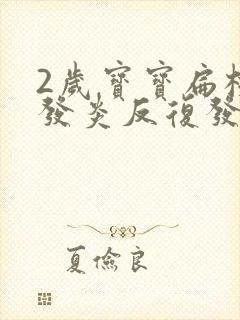 2歲寶寶扁
發炎反復發
夏儉良